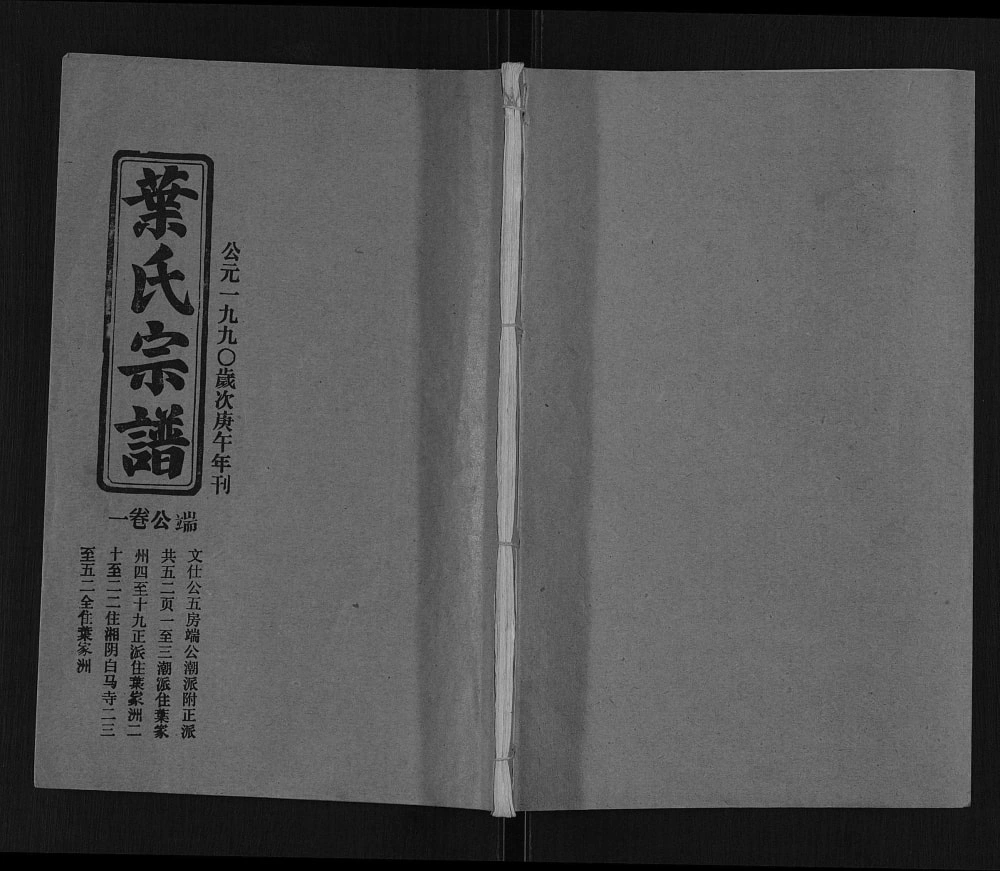 公元一九九〇歲次庚午年刊
葉氏宗譜
端公卷一
文仕公五房端公潮派附正派
共五二页一至三潮派住葉家
州四至十九正派住葉家洲二
十至二二住湘阴白马寺二三
至五二全住葉家洲